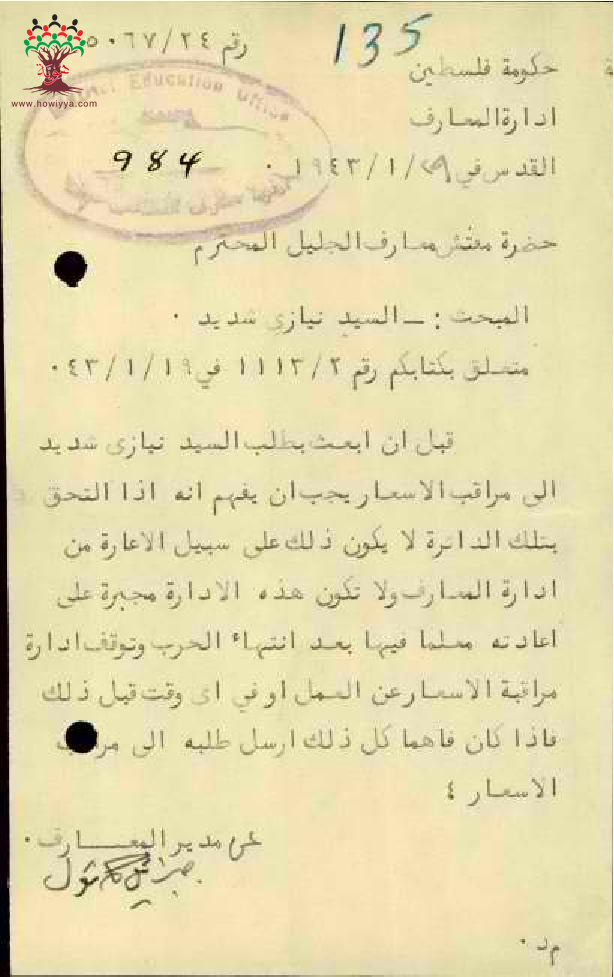 135
رقم ٢٤/٥٠٦٧
www.howiyya.com
حكومة فلسطين
District Education Office
ادارة المعارف
984
القدس في /١/١٩٤٣ ٠
حضرة مفتش معارف الجليل المحترم
المبحث : ــ السيد نيازى شديد ٠
متعلق بكتابكم رقم ١١١٣/٢ في ١٩/١/٠٤٣
قبل ان ابعث بطلب السيد نيازى شديد
الى مراقب الاسعار يجب ان يفهم انه اذا التحق
بتلك الدائرة لا يكون ذلك على سبيل الاعارة من
ادارة المعارف ولا تكون هذه الادارة مجبرة على
اعادته معلما فيها بعد انتهاء الحرب وتوقف ادارة
مراقبة الاسعار عن العمل او في اى وقت قبل ذلك
فاذا كان فاهما كل ذلك ارسل طلبه الى
الاسعار ٤
عن مدير المعــــارف ٠
م د ٠